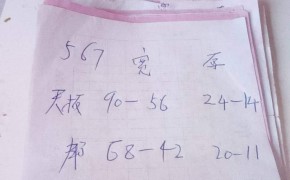 567 宽 厚
天板 90-56 24-14
帮 68-42 20-11